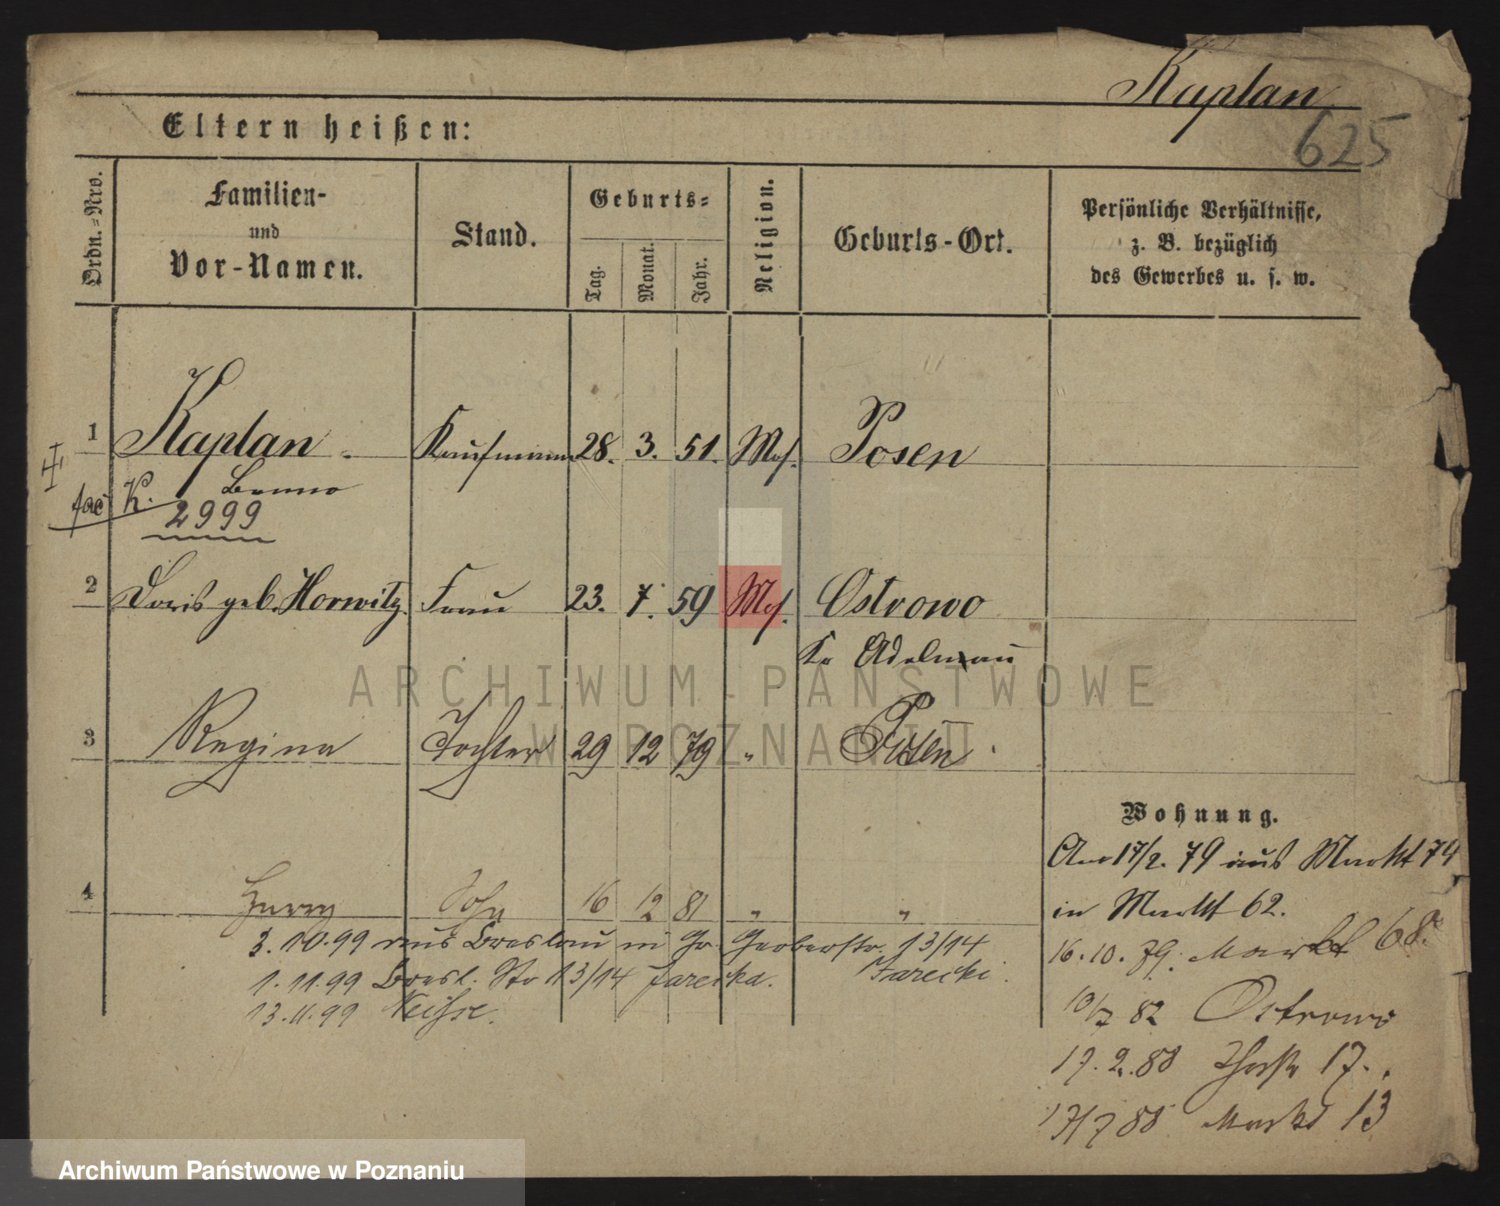 Kaplan
625
Eltern heißen:
Ordn.-Nro.
Familien-
und
Vor-Namen.
Stand.
Geburts-
Tag.
Monat.
Jahr.
Religion.
Geburts-Ort.
Persönliche Verhältnisse,
z. B. bezüglich
des Gewerbes u. s. w.
1 Kaplan Kaufmann 28. 3. 51. Mos. Posen
K. Benno
2999
2 Doris geb. Horwitz Frau 23. 7. 59 Mos. Ostrowo
Kr Adelnau
ARCHIWUM PAŃSTWOWE
W POZNANIU
3 Regina Tochter 29 12 79 " Posen
Wohnung.
Am 17/2. 79 aus Markt 74
in Markt 62.
4 Harry Sohn 16 12 81 " "
16. 10. 79. Markt 68.
3. 10. 99 aus Breslau in Gr. Gerberstr. 13/14
1. 11. 99 Bresl. Str 13/14 Jarecka. Jarecki.
13. 11. 99 Neisse.
10/7 82 Ostrowo
17. 2. 88 17.
17/7 88 Markt 13
Archiwum Państwowe w Poznaniu